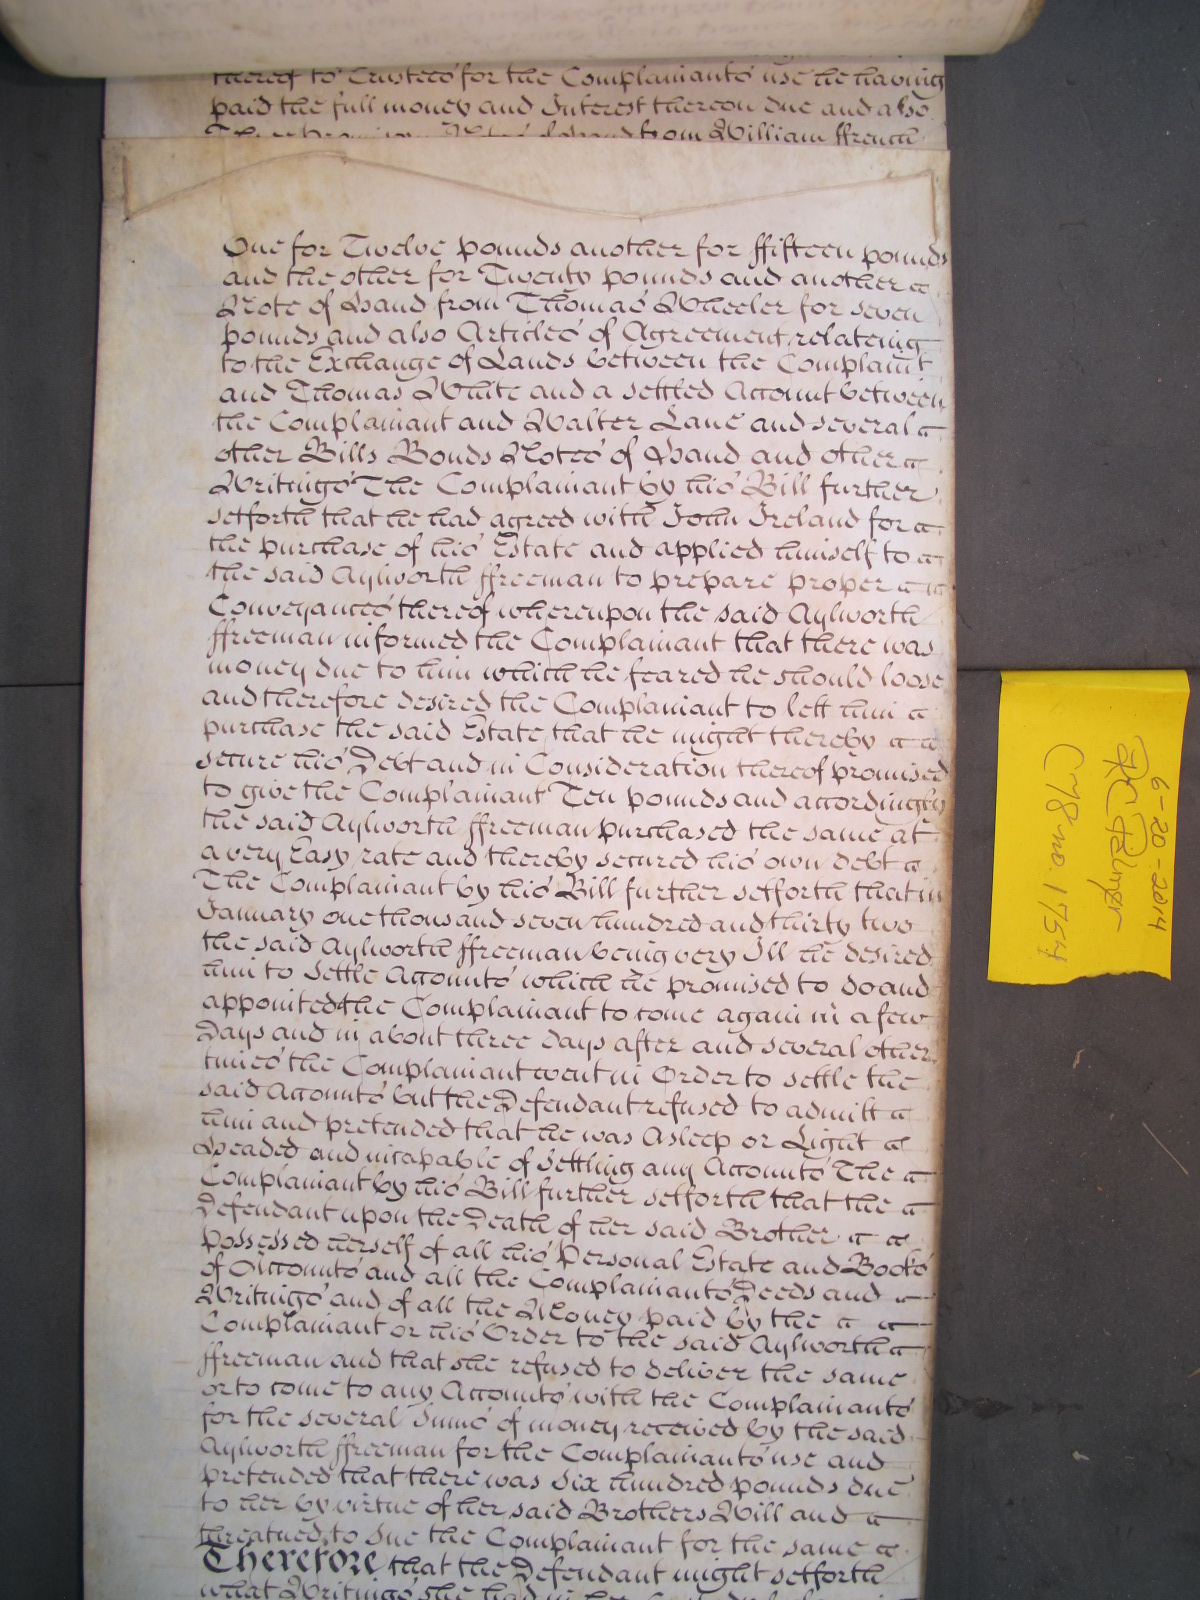 thereof to Trustees for the Complainants use he having
paid the full money and Interest thereon due and also
from William ffrench
One for Twelve pounds another for ffifteen pounds
and the other for Twenty pounds and another
Note of Hand from Thomas Wheeler for seven
pounds and also Articles of Agreement relateing
to the Exchange of Lands between the Complaint
and Thomas White and a settled Account between
the Complainant and Walter Lane and several
other Bills Bonds Notes of Hand and other
Writings The Complainant by his Bill further
setforth that he had agreed with John Ireland for
the purchase of his Estate and applied himself to
the said Aylworth ffreeman to prepare proper
Conveyances thereof whereupon the said Aylworth
ffreeman informed the Complainant that there was
money due to him which he feared he should loose
and therefore desired the Complainant to lett him
purchase the said Estate that he might thereby
secure his Debt and in Consideration thereof promised
to give the Complainant Ten pounds and accordingly
the said Aylworth ffreeman purchased the same at
a very Easy rate and thereby secured his own debt
The Complainant by his Bill further setforth that in
January one thousand seven hundred and thirty two
the said Aylworth ffreeman being very Ill he desired
him to Settle Accounts which he promised to do and
appointed the Complainant to come again in a few
Days and in about three Days after and several other
times the Complainant went in Order to settle the
said Accounts but the Defendant refused to admitt
him and pretended that he was Asleep or Light
Headed and incapable of Settling any Accounts The
Complainant by his Bill further setforth that the
Defendant upon the Death of her said Brother
possessed herself of all his Personal Estate and Books
of Accounts and all the Complainants Deeds and
Writings and of all the Money paid by the
Complainant or his Order to the said Aylworth
ffreeman and that she refused to deliver the same
or to come to any Accounts with the Complainants
for the several Sums of money received by the said
Aylworth ffreeman for the Complainants use and
pretended that there was Six hundred pounds due
to her by virtue of her said Brothers Will and
threatned to Sue the Complainant for the same
Therefore that the Defendant might setforth
what Writings she had in her
6-20-2014
C78 no. 1754